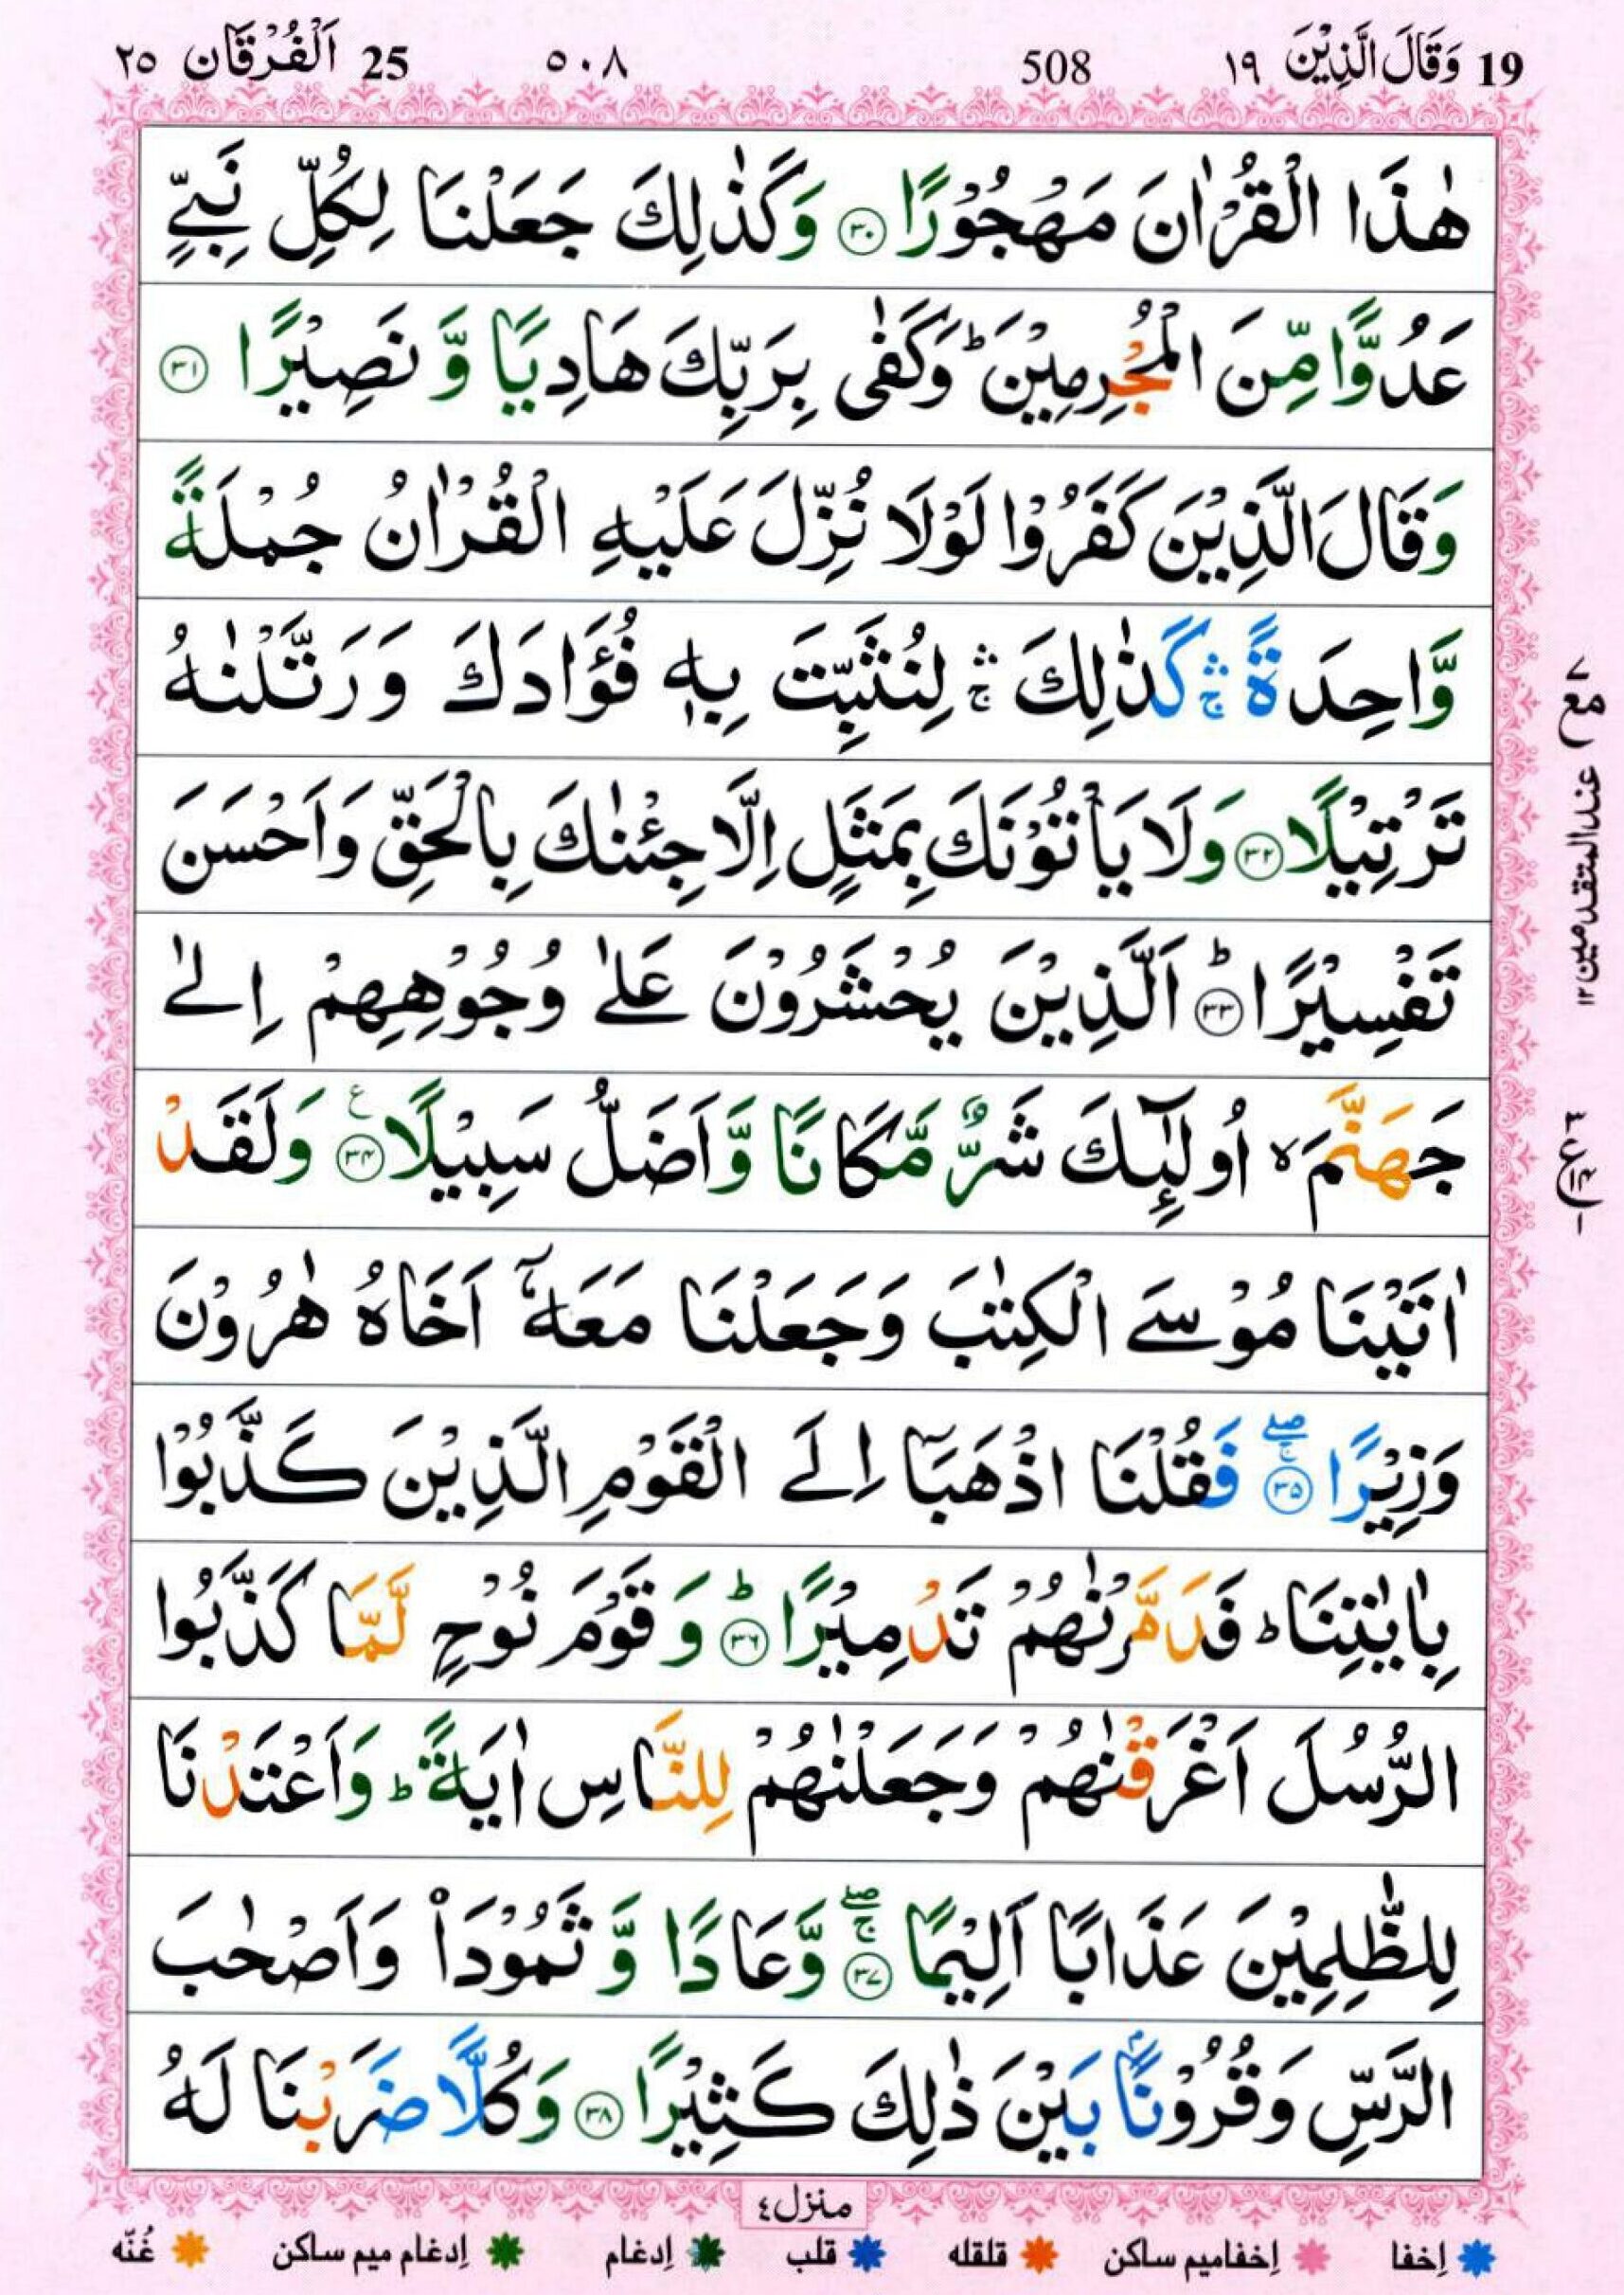 19 وَقَالَ الَّذِيْنَ ١٩ 508 ٥٠٨ 25 اَلْفُرْقَان ٢٥
هٰذَا الْقُرْاٰنَ مَهْجُوْرًا ۝۳۰ وَكَذٰلِكَ جَعَلْنَا لِكُلِّ نَبِيٍّ
عَدُوًّا مِّنَ الْمُجْرِمِيْنَ ؕ وَكَفٰى بِرَبِّكَ هَادِيًا وَّ نَصِيْرًا ۝۳۱
وَقَالَ الَّذِيْنَ كَفَرُوْا لَوْلَا نُزِّلَ عَلَيْهِ الْقُرْاٰنُ جُمْلَةً
وَّاحِدَةً ۛۚ كَذٰلِكَ ۛۚ لِنُثَبِّتَ بِهٖ فُؤَادَكَ وَرَتَّلْنٰهُ
تَرْتِيْلًا ۝۳۲ وَلَا يَاْتُوْنَكَ بِمَثَلٍ اِلَّا جِئْنٰكَ بِالْحَقِّ وَاَحْسَنَ
تَفْسِيْرًا ؕ۝۳۳ اَلَّذِيْنَ يُحْشَرُوْنَ عَلٰى وُجُوْهِهِمْ اِلٰى
جَهَنَّمَ ۙ اُولٰٓئِكَ شَرٌّ مَّكَانًا وَّاَضَلُّ سَبِيْلًا ۝۳۴ ع وَلَقَدْ
اٰتَيْنَا مُوْسَى الْكِتٰبَ وَجَعَلْنَا مَعَهٗۤ اَخَاهُ هٰرُوْنَ
وَزِيْرًا ۚۖ۝۳۵ فَقُلْنَا اذْهَبَاۤ اِلَى الْقَوْمِ الَّذِيْنَ كَذَّبُوْا
بِاٰيٰتِنَا ؕ فَدَمَّرْنٰهُمْ تَدْمِيْرًا ؕ۝۳۶ وَقَوْمَ نُوْحٍ لَّمَّا كَذَّبُوا
الرُّسُلَ اَغْرَقْنٰهُمْ وَجَعَلْنٰهُمْ لِلنَّاسِ اٰيَةً ؕ وَاَعْتَدْنَا
لِلظّٰلِمِيْنَ عَذَابًا اَلِيْمًا ۚۖ۝۳۷ وَّعَادًا وَّ ثَمُوْدَا۟ وَاَصْحٰبَ
الرَّسِّ وَقُرُوْنًۢا بَيْنَ ذٰلِكَ كَثِيْرًا ۝۳۸ وَكُلًّا ضَرَبْنَا لَهُ
منزل٤
اِخفا اِخفامیم ساکن قلقله قلب اِدغام اِدغام میم ساکن غُنّه
مع عند المتقدمین ۱۲